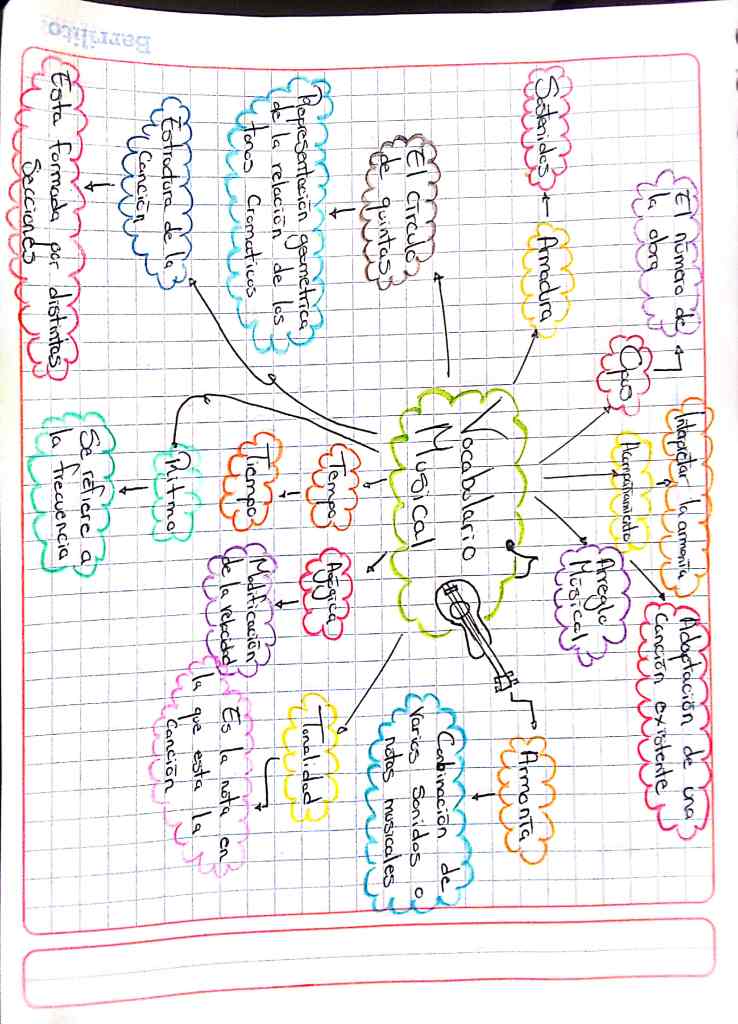 El número de
la obra
Interpretar la armonía
Adaptación de una
Canción existente
Opus
Acompañamiento
Arreglo
Músical
Sostenidos
Armadura
Armonía
Vocabulario
Musical
El circulo
de quintas
Conbinación de
Varios Sonidos o
notas musicales
Representación geometrica
de la relación de los
tonos Cromaticos
Tempo
Tiempo
Agógica
Modificación
de la velocidad
Tonalidad
Es la nota en
la que esta la
canción
Estructura de la
Canción
Ritmo
Esta formada por distintas
Secciones
Se refiere a
la frecuencia
Barrilito